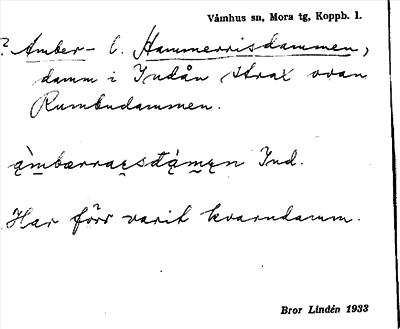 Våmhus sn, Mora tg, Koppb. l.
? Amber- l. Hammerrisdammen,
damm i Indån strax ovan
Rumbudammen.
ą̀mbærraęsdą́męn Ind.
Har förr varit kvarndamm.
Bror Lindén 1933